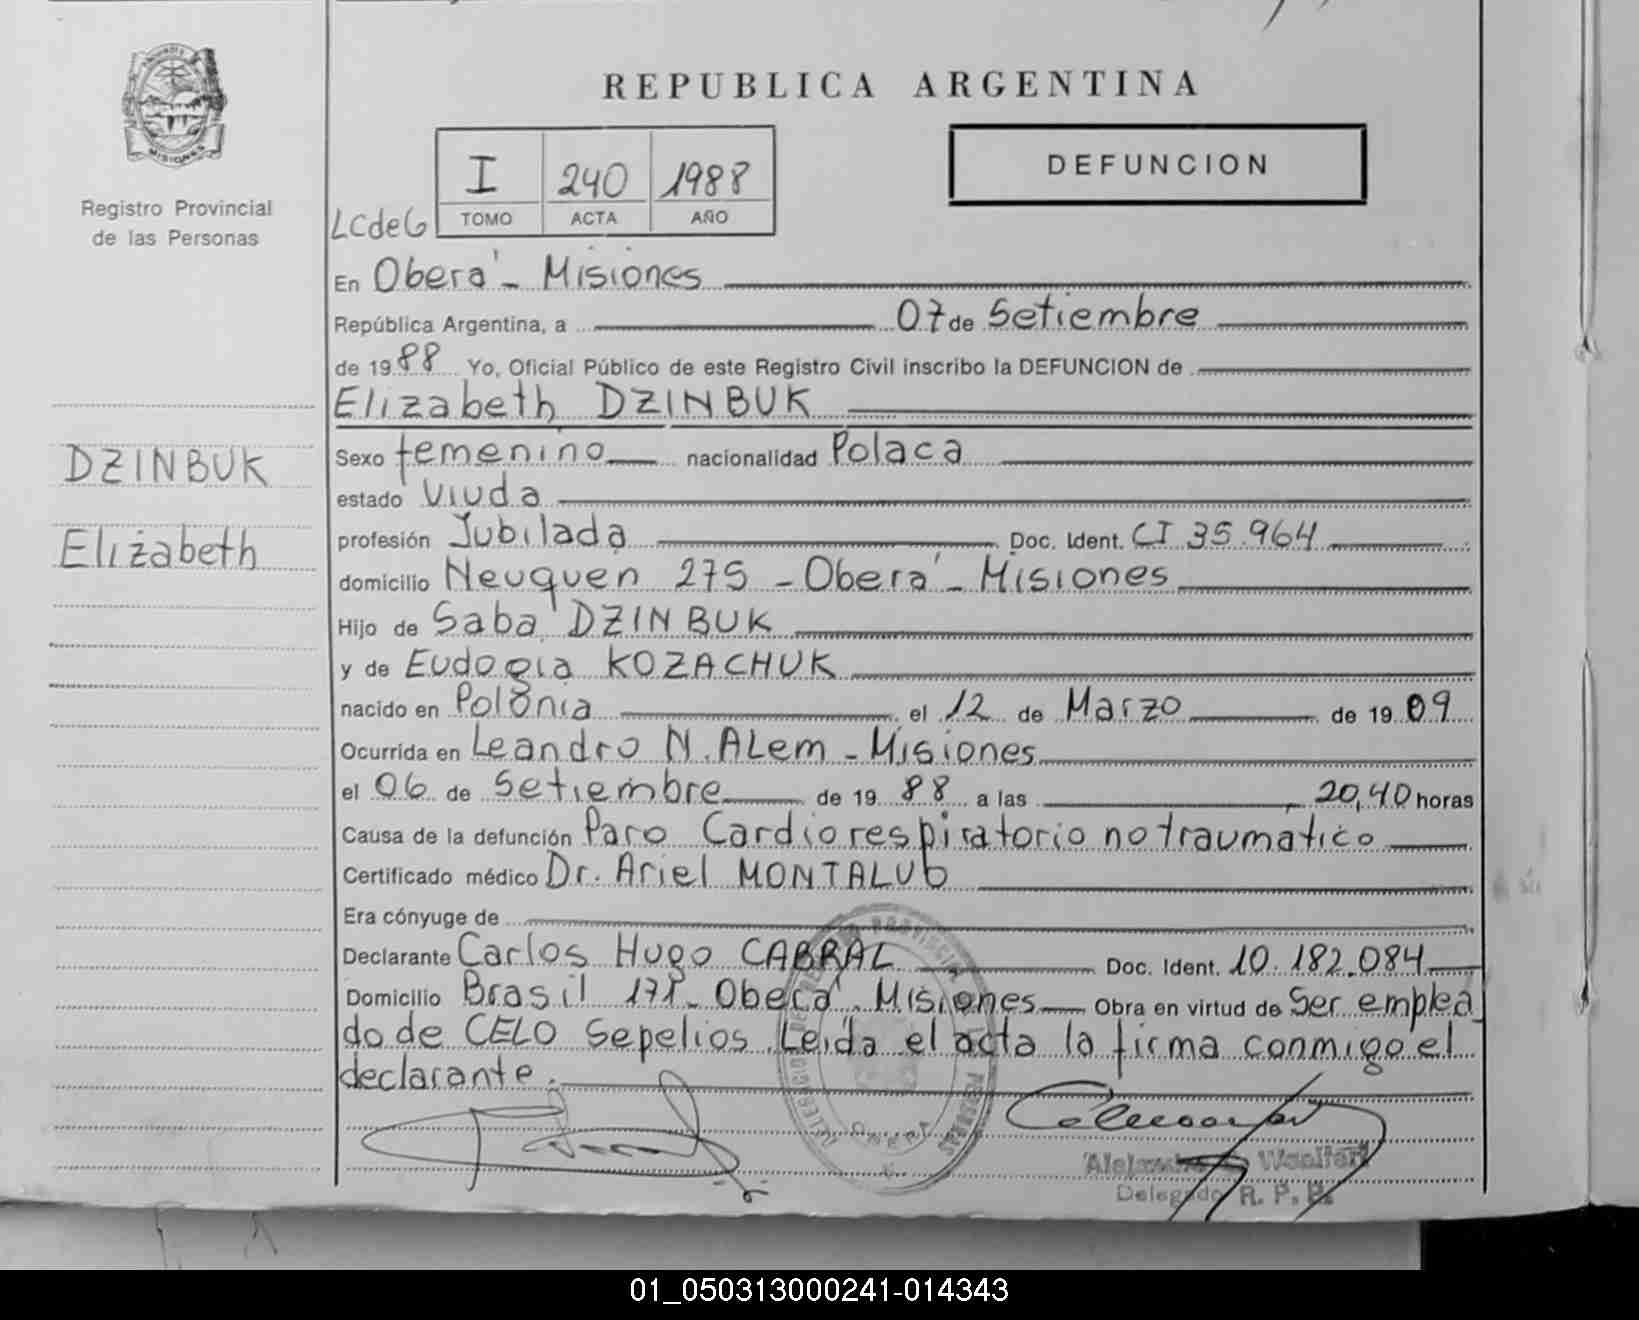 REPUBLICA ARGENTINA
MISIONES
Registro Provincial
de las Personas
I 240 1988
TOMO ACTA AÑO
DEFUNCION
LCdeG
En Oberá - Misiones
República Argentina, a 07 de Setiembre
de 1988 Yo, Oficial Público de este Registro Civil inscribo la DEFUNCION de
Elizabeth DZINBUK
DZINBUK
Elizabeth
Sexo femenino nacionalidad Polaca
estado Viuda
profesión Jubilada Doc. Ident. CI 35.964
domicilio Neuquen 275 - Oberá - Misiones
Hijo de Saba DZINBUK
y de Eudogia KOZACHUK
nacido en Polonia el 12 de Marzo de 1909
Ocurrida en Leandro N. ALem - Misiones
el 06 de Setiembre de 1988 a las 20,40 horas
Causa de la defunción Paro Cardiorespiratorio no traumatico
Certificado médico Dr. Ariel MONTALVO
Era cónyuge de
Declarante Carlos Hugo CABRAL Doc. Ident. 10.182.084
Domicilio Brasil 171 - Oberá - Misiones Obra en virtud de Ser emplea
do de CELO Sepelios. Leida el acta la firma conmigo el
declarante.
Delegado R. P. P.
01_050313000241-014343